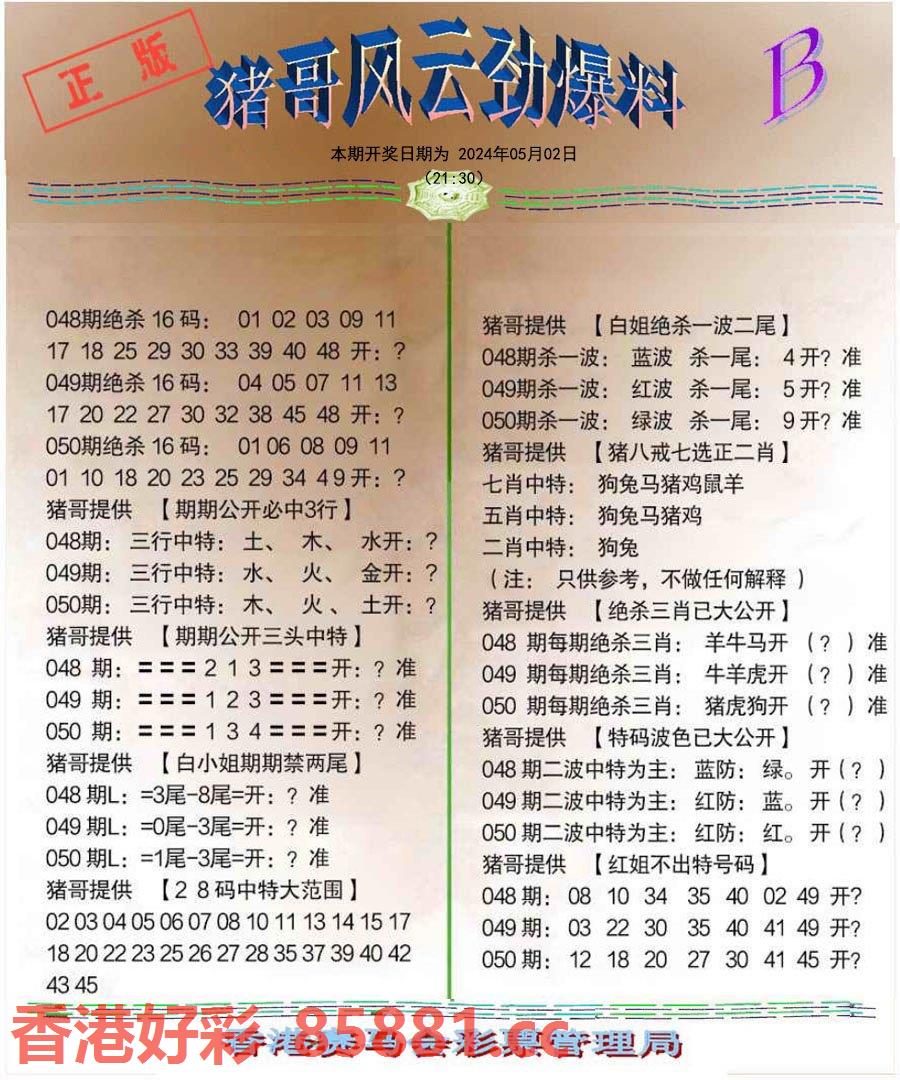 正版
猪哥风云劲爆料
B
本期开奖日期为 2024年05月02日
(21:30)
048期绝杀 16 码： 01 02 03 09 11
17 18 25 29 30 33 39 40 48 开：?
049期绝杀 16 码： 04 05 07 11 13
17 20 22 27 30 32 38 45 48 开：?
050期绝杀 16 码： 01 06 08 09 11
01 10 18 20 23 25 29 34 4 9 开：?
猪哥提供 【期期公开必中3行】
048期：三行中特：土、 木、 水开：?
049期：三行中特：水、 火、 金开：?
050期：三行中特：木、 火 、 土开：?
猪哥提供 【期期公开三头中特】
048 期：===2 1 3===开：? 准
049 期：===1 2 3===开：? 准
050 期：===1 3 4===开：? 准
猪哥提供 【白小姐期期禁两尾】
048 期L：=3尾-8尾=开：? 准
049 期L：=0尾-3尾=开：? 准
050 期L：=1尾-3尾=开：? 准
猪哥提供 【2 8 码中特大范围】
02 03 04 05 06 07 08 10 11 13 14 15 17
18 20 22 23 25 26 27 28 35 37 39 40 42
43 45
猪哥提供 【白姐绝杀一波二尾】
048期杀一波： 蓝波 杀一尾： 4 开? 准
049期杀一波： 红波 杀一尾： 5 开? 准
050期杀一波： 绿波 杀一尾： 9 开? 准
猪哥提供 【猪八戒七选正二肖】
七肖中特： 狗兔马猪鸡鼠羊
五肖中特： 狗兔马猪鸡
二肖中特： 狗兔
（注： 只供参考，不做任何解释 ）
猪哥提供 【绝杀三肖已大公开】
048 期每期绝杀三肖： 羊牛马开 （? ）准
049 期每期绝杀三肖： 牛羊虎开 （? ）准
050 期每期绝杀三肖： 猪虎狗开 （? ）准
猪哥提供 【特码波色已大公开】
048 期二波中特为主：蓝防：绿。开（? ）
049 期二波中特为主：红防：蓝。开（? ）
050 期二波中特为主：红防：红。开（? ）
猪哥提供 【红姐不出特号码】
048 期： 08 10 34 35 40 02 49 开?
049 期： 03 22 30 35 40 41 49 开?
050 期： 12 18 20 27 30 41 45 开?
香港好彩 85881.cc
香港赛马会彩票管理局